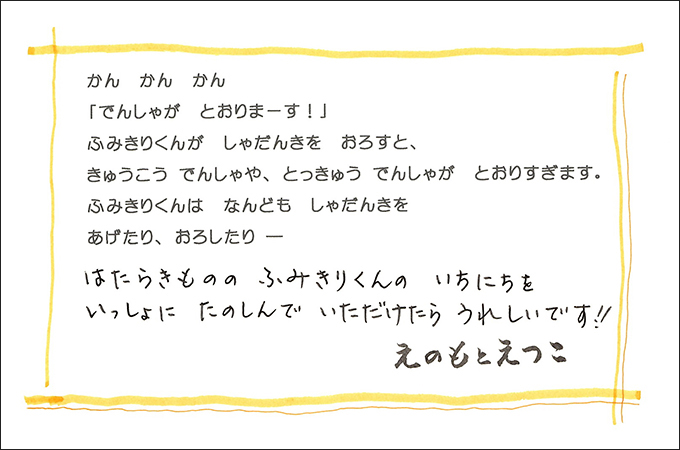 かん　かん　かん
「でんしゃが　とおりまーす！」
ふみきりくんが　しゃだんきを　おろすと、
きゅうこう でんしゃや、とっきゅう でんしゃが　とおりすぎます。
ふみきりくんは　なんども　しゃだんきを
あげたり、おろしたり ―
はたらきものの　ふみきりくんの　いちにちを
いっしょに　たのしんで　いただけたら　うれしいです!!
えのもとえつこ